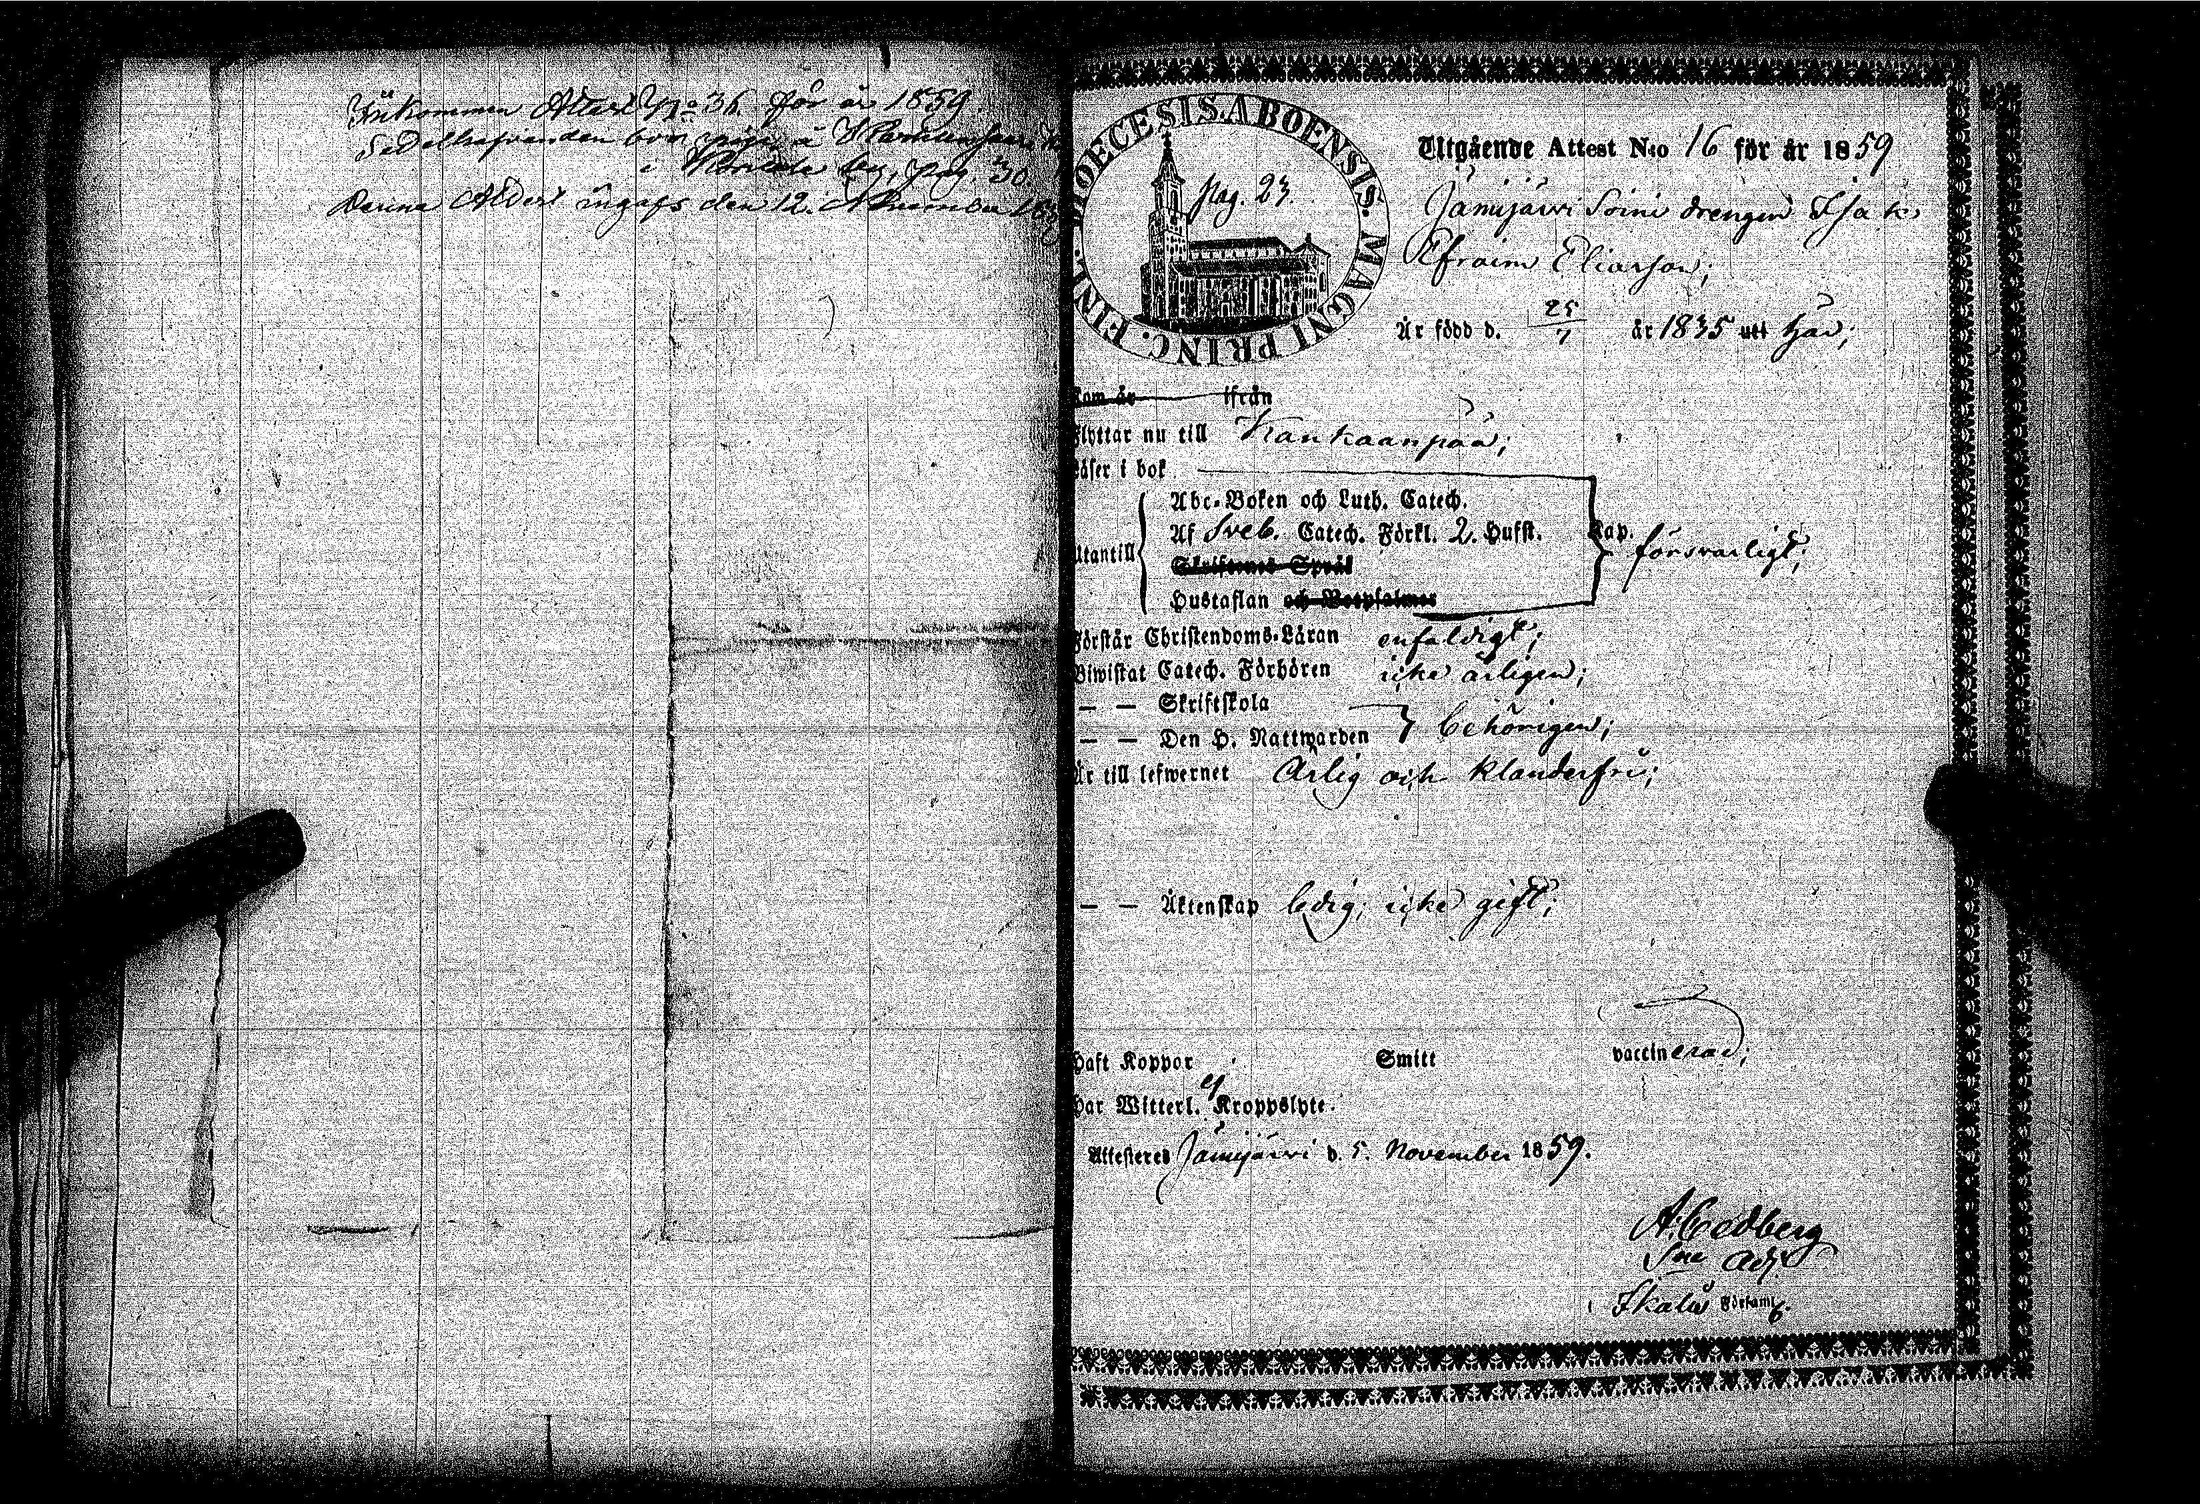 Inkommen Attest No 36. för år 1859.
Sedelhafvanden bor
i by, pag. 30.
Denna Attest ingafs den 12. November
DIOECESIS ABOENSIS. MAGNI PRINC. FINL.
pag. 23.
Utgående Attest N:o 16 för år 1859
Jämijärvi Soini drengen Isak
Efraim Eliasson;
Är född d. 25/7 år 1835 utt här;
Kom år ifrån
Flyttar nu till Kankaanpää;
Läser i bok
Abc-Boken och Luth. Catech.
Utantill Af Sveb. Catech. Förkl. 2. Hufst. Kap. försvarligt;
Skriftenes Språk
Hustaflan och Botpsalmer
Förstår Christendoms-Läran enfaldigt;
Biwistat Catech. Förhören icke årligen;
— — Skriftskola
— — Den H. Nattwarden behörigen;
Är till lefwernet Ärlig och klanderfri;
— — Äktenskap ledig; icke gift;
Haft Koppor Smitt vaccinerad;
Har Witterl. ej Kroppslyte.
Attesteres Jämijärvi d. 5. November 1859.
A. Cedberg
Sne Adj.
Ikalis Församl.